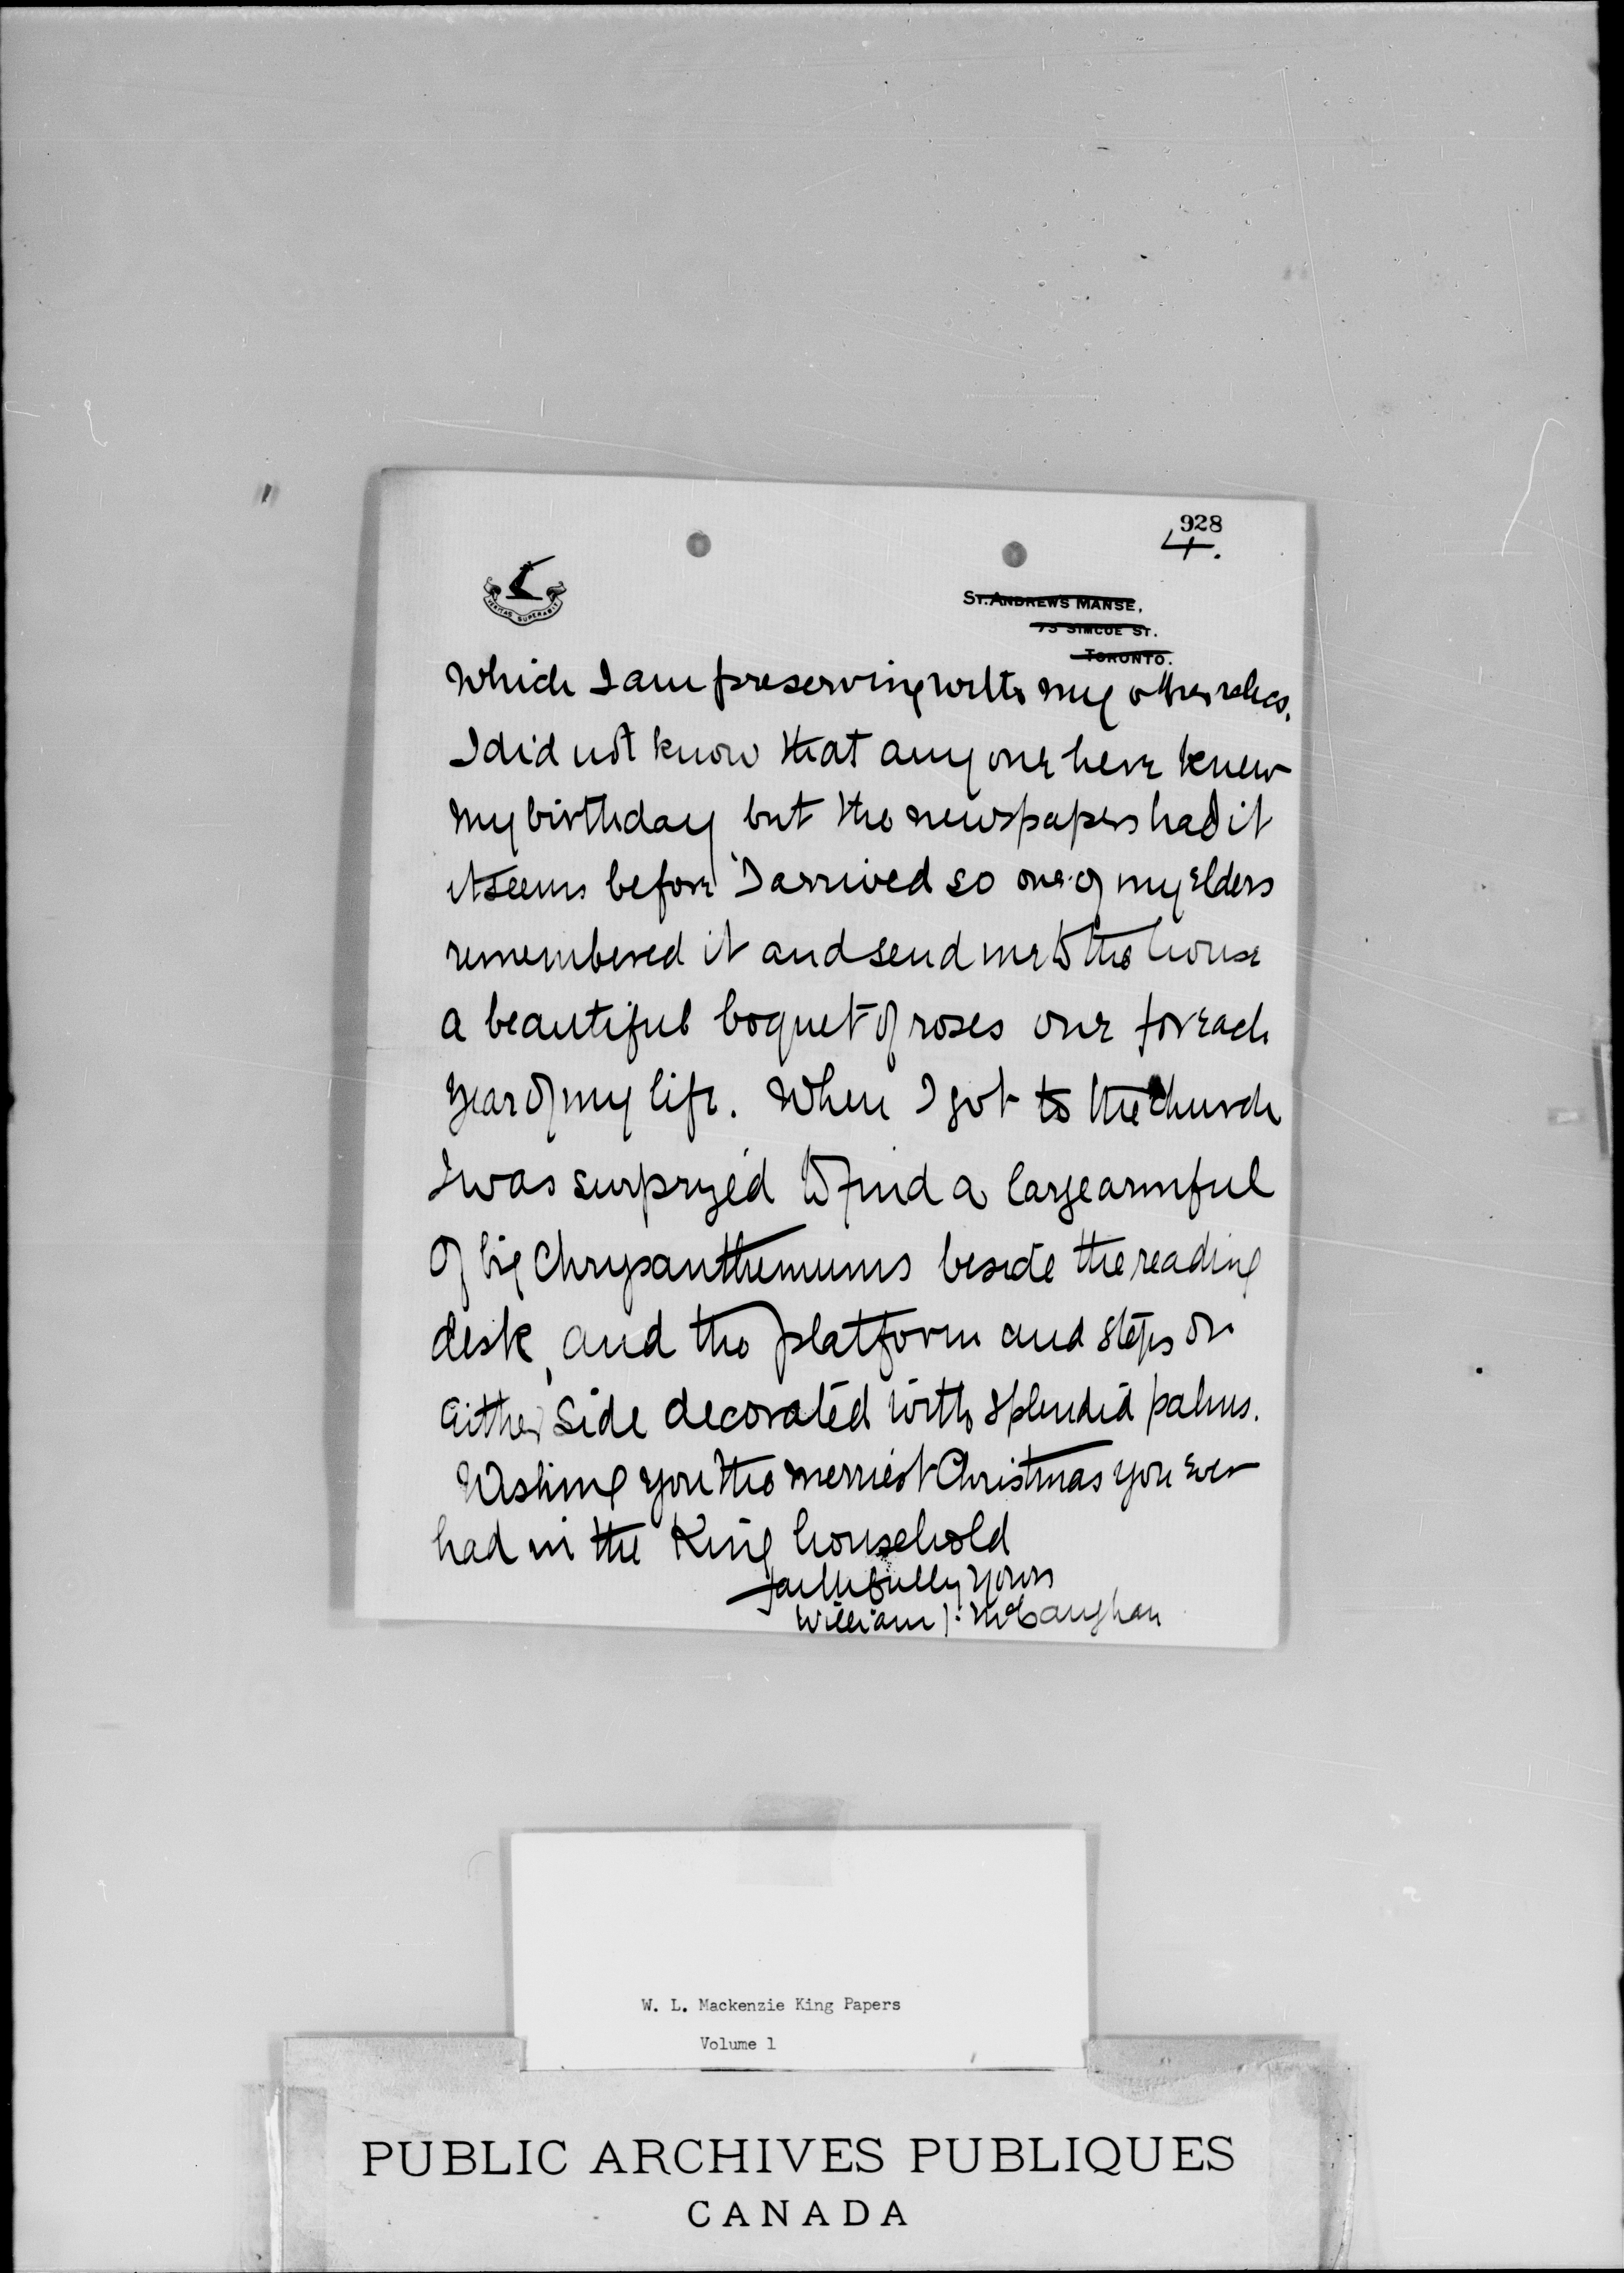 928
4.
VERITAS SUPERABIT
ST. ANDREW'S MANSE,
73 SIMCOE ST.
TORONTO.
Which I am preserving with my other relics.
I did not know that any one here knew
my birthday but the newspapers had it
it seems before I arrived so one of my elders
remembered it and send me to the house
a beautiful boquet of roses one for each
year of my life. When I got to the church
I was surprized to find a large armful
of big Chrysanthemums beside the reading
desk, and the platform and steps on
either side decorated with splendid palms.
Wishing you the merriest Christmas you ever
had in the King household
Faithfully yours
William J. McCaughan
W. L. Mackenzie King Papers
Volume 1
PUBLIC ARCHIVES PUBLIQUES
CANADA